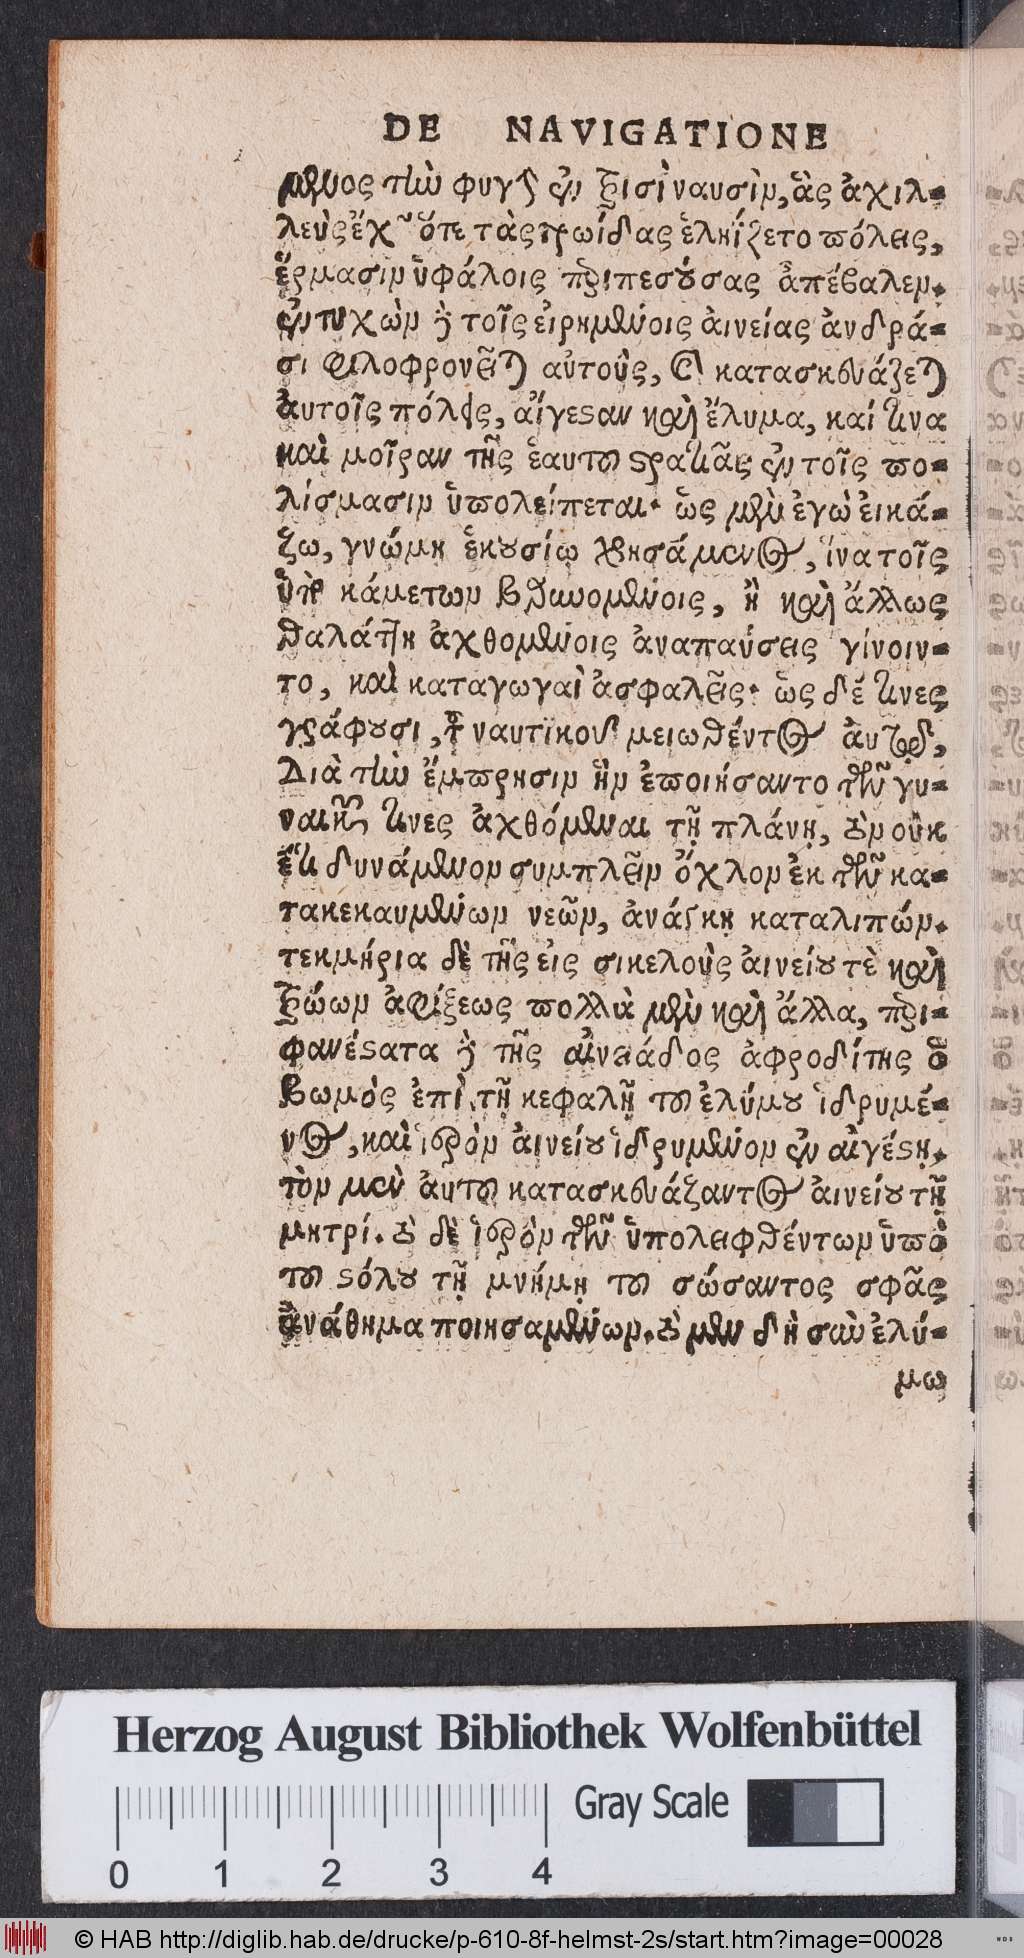 DE NAVIGATIONE
μενος τὴν φυγὴν ἐν τρισὶ ναυσὶν, ἃς ἀχιλ-
λεὺς ἔχων ὅτε τὰς τρωίδας ἐληΐζετο πόλεις,
ἕρμασιν ὑφάλοις περιπεσούσας ἀπέβαλεν.
ἐντυχὼν δὲ τοῖς εἰρημένοις αἰνείας ἀνδρά-
σι φιλοφρονεῖται αὐτοὺς, καὶ κατασκευάζεται
ἀυτοῖς πόλεις, αἴγεσαν καὶ ἔλυμα, καί τινα
καὶ μοῖραν τῆς ἑαυτοῦ στρατιᾶς ἐν τοῖς πο-
λίσμασιν ὑπολείπεται· ὡς μὲν ἐγὼ ἐικά-
ζω, γνώμῃ ἑκουσίῳ χρησάμενος, ἵνα τοῖς
ὑπὸ κάμετων βαρυνομένοις, ἢ καὶ ἄλλως
θαλάττῃ ἀχθομένοις ἀναπαύσεις γίνοιν-
το, καὶ καταγωγαὶ ἀσφαλεῖς· ὡς δέ τινες
γράφουσι, τοῦ ναυτικοῦ μειωθέντος ἀυτῷ,
Διὰ τὴν ἔμπρησιν ἣν ἐποιήσαντο τῶν γυ-
ναικῶν τινες ἀχθόμεναι τῇ πλάνῃ, τὸν οὐκ
ἔτι δυνάμενον συμπλεῖν ὄχλον ἐκ τῶν κα-
τακεκαυμένων νεῶν, ἀνάγκῃ καταλιπών.
τεκμήρια δὲ τῆς εἰς σικελοὺς ἀινείου τὲ καὶ
τρώων ἀφίξεως πολλὰ μὲν καὶ ἄλλα, περι-
φανέστατα δὲ τῆς αἰνειάδος ἀφροδίτης ὁ
βωμὸς ἐπὶ τῇ κεφαλῇ τοῦ ἐλύμου ἱδρυμέ-
νος, καὶ ἱερὸν ἀινείου ἱδρυμένον ἐν αἰγέστῃ,
τὸν μὲν ἀυτοῦ κατασκευάζαντος ἀινείου τῇ
μητρί. τὸ δὲ ἱερὸν τῶν ὑπολειφθέντων ὑπὸ
τοῦ στόλου τῇ μνήμῃ τοῦ σώσαντος σφᾶς
ἀνάθημα ποιησαμένων. τὸ μὲν δὴ σὺν ἐλύ-
μω
Herzog August Bibliothek Wolfenbüttel
0 1 2 3 4
Gray Scale
© HAB http://diglib.hab.de/drucke/p-610-8f-helmst-2s/start.htm?image=00028